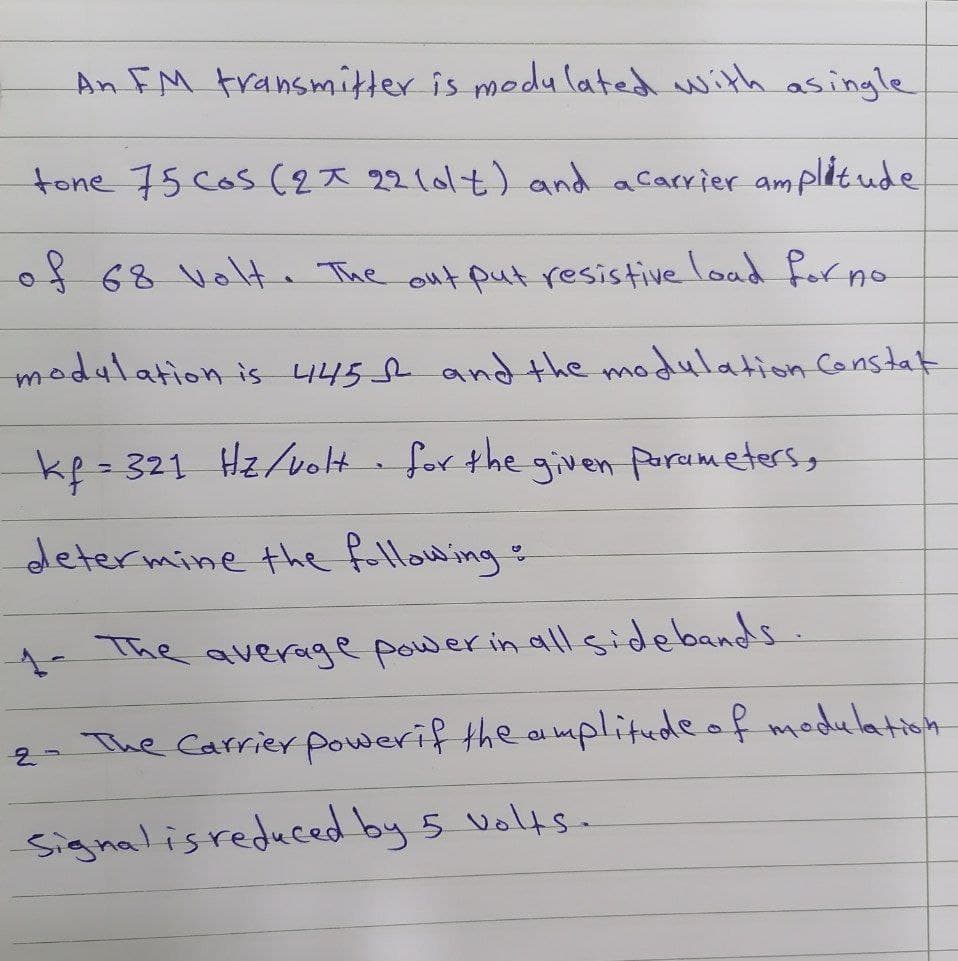 An FM transmitter is modulated with a single
tone 75 cos (2π 2210t) and a carrier amplitude
of 68 volt. The out put resistive load for no
modulation is 445 Ω and the modulation Constat
kf = 321 Hz/volt. for the given parameters,
determine the following:
1- The average power in all sidebands.
2- The Carrier power if the amplitude of modulation
signal is reduced by 5 volts.